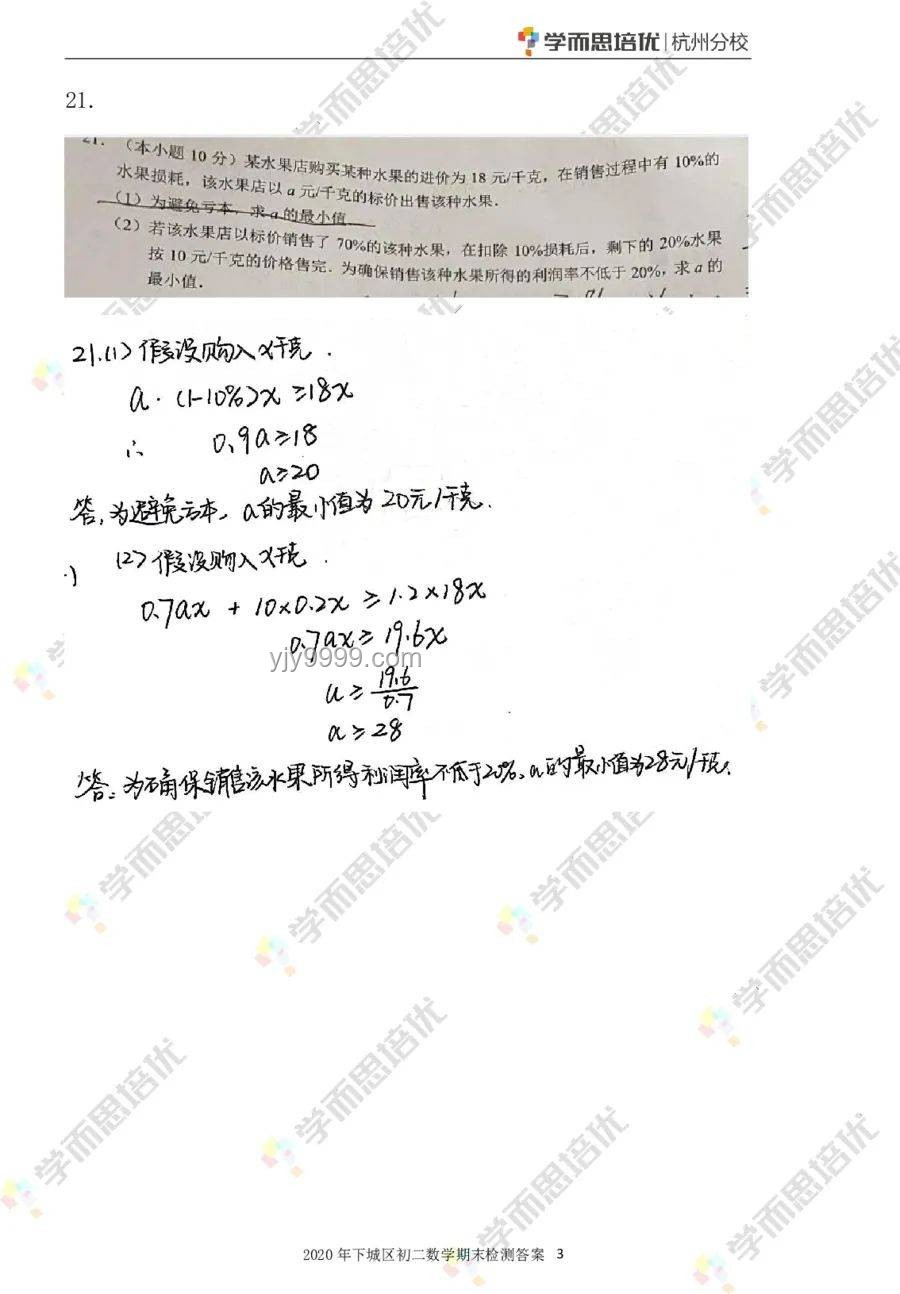 学而思培优 | 杭州分校
21.
21. （本小题 10 分）某水果店购买某种水果的进价为 18 元/千克，在销售过程中有 10%的
水果损耗，该水果店以 a 元/千克的标价出售该种水果．
（1）为避免亏本，求 a 的最小值
（2）若该水果店以标价销售了 70%的该种水果，在扣除 10%损耗后，剩下的 20%水果
按 10 元/千克的价格售完．为确保销售该种水果所得的利润率不低于 20%，求 a 的
最小值．
21.(1) 假设购入x千克．
a·(1-10%)x ≥18x
∴ 0.9a≥18
a≥20
答，为避免亏本，a的最小值为20元/千克．
(2) 假设购入x千克．
0.7ax + 10×0.2x ≥ 1.2×18x
0.7ax ≥ 19.6x
yjy9999.com
a ≥ 19.6/0.7
a ≥ 28
答：为确保销售该水果所得利润率不低于20%，a的最小值为28元/千克．
2020 年下城区初二数学期末检测答案 3